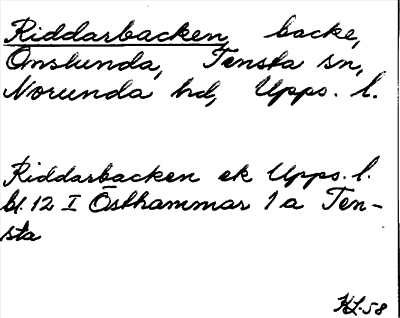 Riddarbacken, backe,
Onslunda, Tensta sn,
Norunda hd, Upps. l.
Riddarbacken ek Upps. l.
bl. 12 I Östhammar 1 a Ten-
sta
HL-58